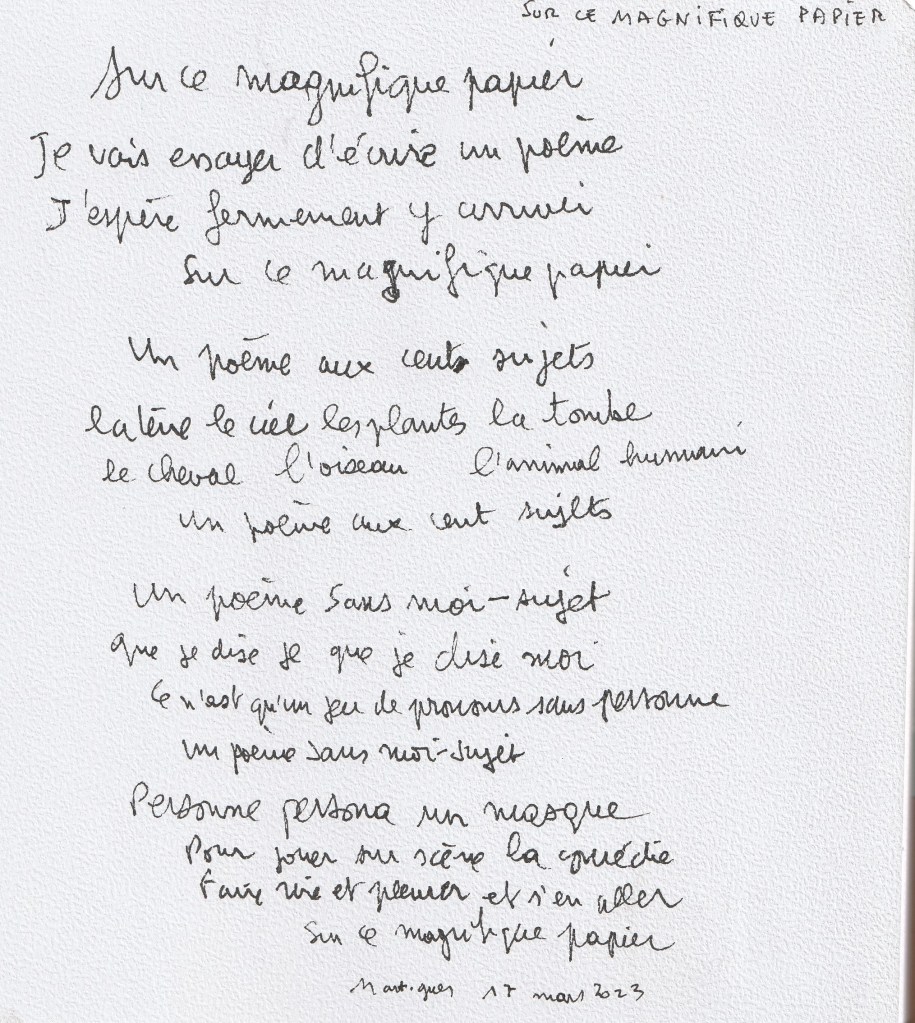 SUR CE MAGNIFIQUE PAPIER
Sur ce magnifique papier
Je vais essayer d'écrire un poème
J'espère fermement y arriver
Sur ce magnifique papier
Un poème aux cents sujets
la terre le ciel les plantes la tombe
le cheval l'oiseau l'animal humain
un poème aux cent sujets
Un poème sans moi-sujet
que je dise je que je dise moi
Ce n'est qu'un jeu de pronoms sans personne
un poème sans moi-sujet
Personne persona un masque
Pour jouer sur scène la comédie
Faire rire et pleurer et s'en aller
Sur ce magnifique papier
Martigues 17 mars 2023